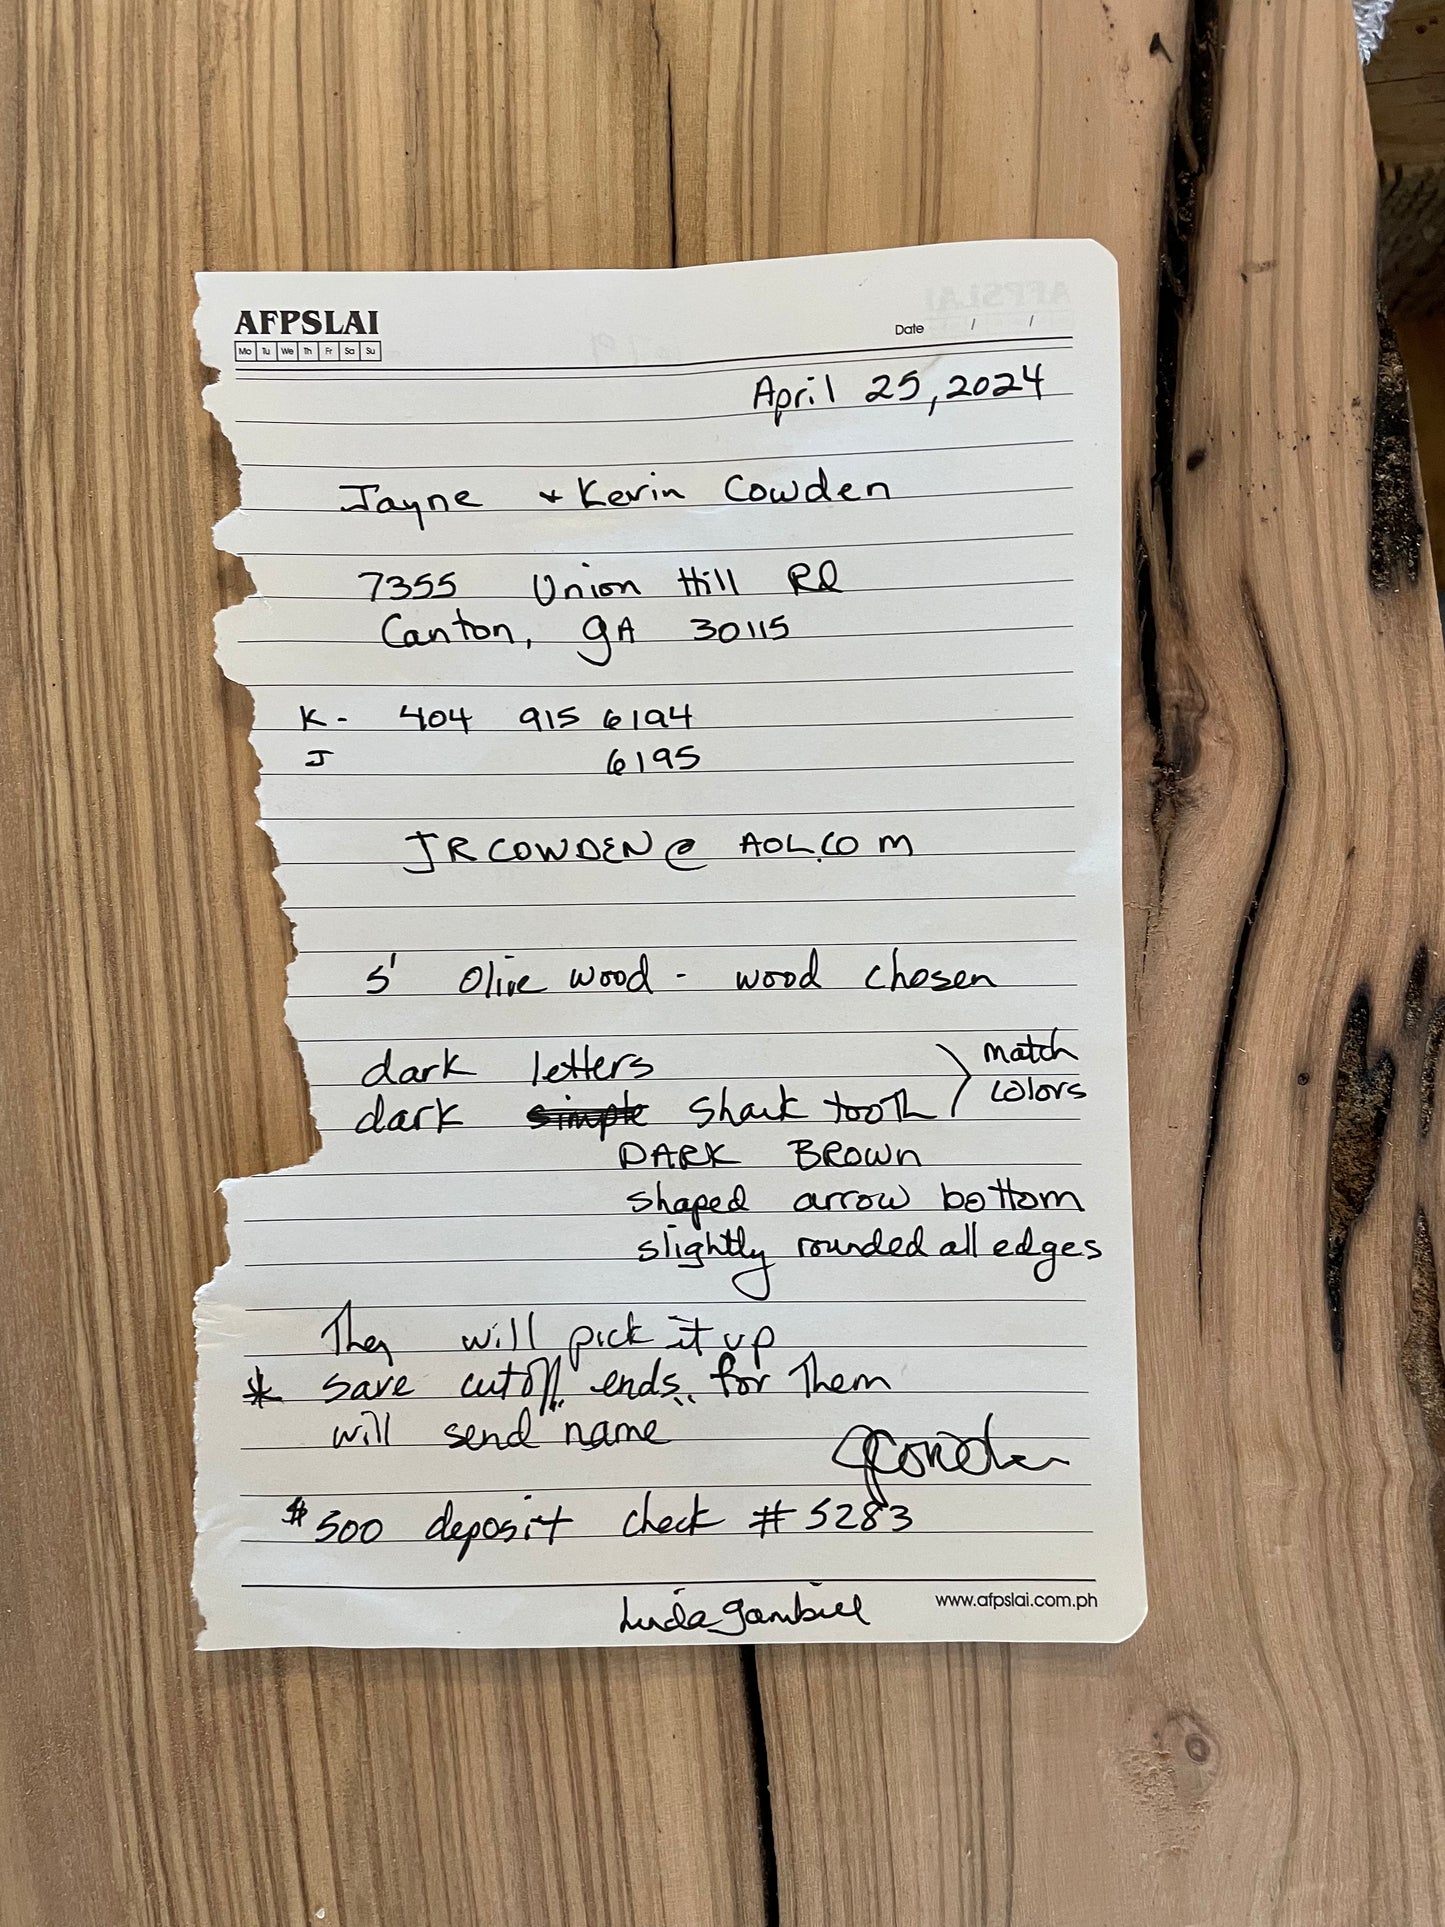 AFPSLAI
Mo Tu We Th Fr Sa Su
Date / /
April 25, 2024
Jayne + Kevin Cowden
7355 Union Hill Rd
Canton, GA 30115
K - 404 915 6194
J 6195
JRCOWDEN@AOL.COM
5' Olive wood - wood chosen
dark letters
match
dark simple shark tooth
colors
DARK BROWN
shaped arrow bottom
slightly rounded all edges
They will pick it up
* save cutoff "ends" for them
will send name
JCowden
$500 deposit check # 5283
Linda Gambill
www.afpslai.com.ph